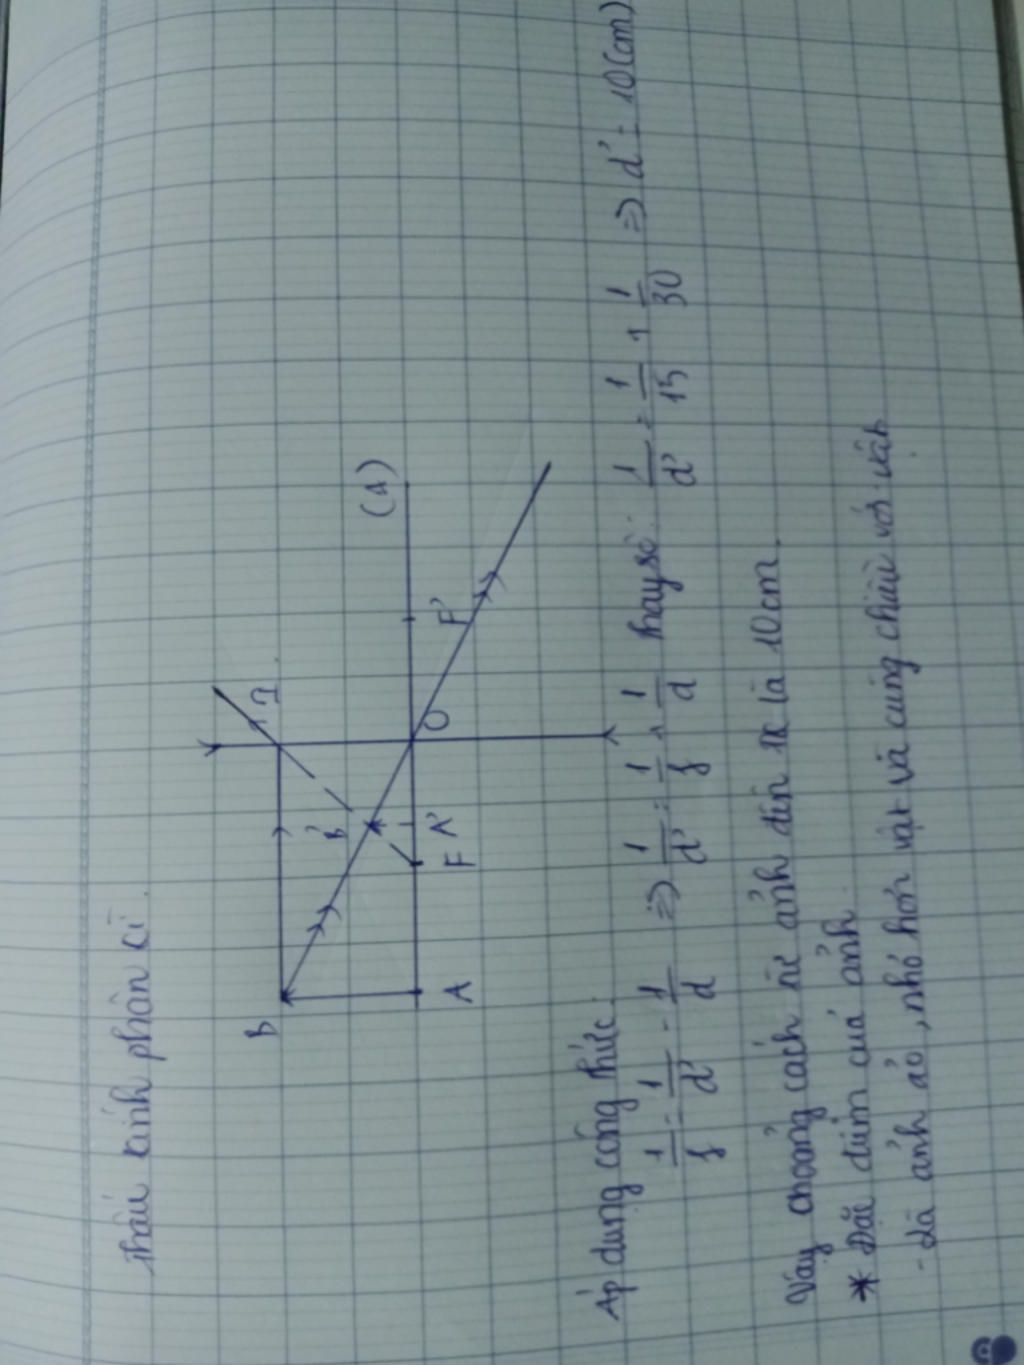 Thấu kính phân kì.
B
I
(Δ)
B'
A
F
A'
O
F'
Áp dụng công thức:
1/f = 1/d' - 1/d => 1/d' = 1/f + 1/d Thay số: 1/d' = 1/15 + 1/30 => d' = 10(cm)
Vậy khoảng cách từ ảnh đến TK là 10cm.
* Đặc điểm của ảnh
- Là ảnh ảo, nhỏ hơn vật và cùng chiều với vật